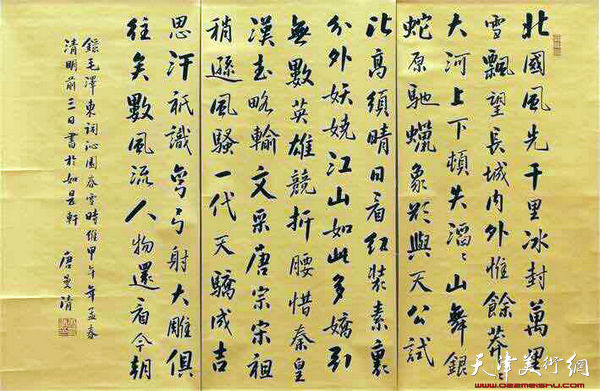 北國風光千里冰封萬里
雪飄望長城內外惟餘莽〻
大河上下頓失滔〻山舞銀
蛇原馳蠟象欲與天公試
比高須晴日看紅裝素裹
分外妖嬈江山如此多嬌引
無數英雄競折腰惜秦皇
漢武略輸文采唐宗宋祖
稍遜風騷一代天驕成吉
思汗祇識彎弓射大雕俱
往矣數風流人物還看今朝
錄毛澤東詞沁園春雪時維甲午年孟春
清明前三日書於如是軒 唐曼清
天津美術網
WWW.022MEISHU.COM